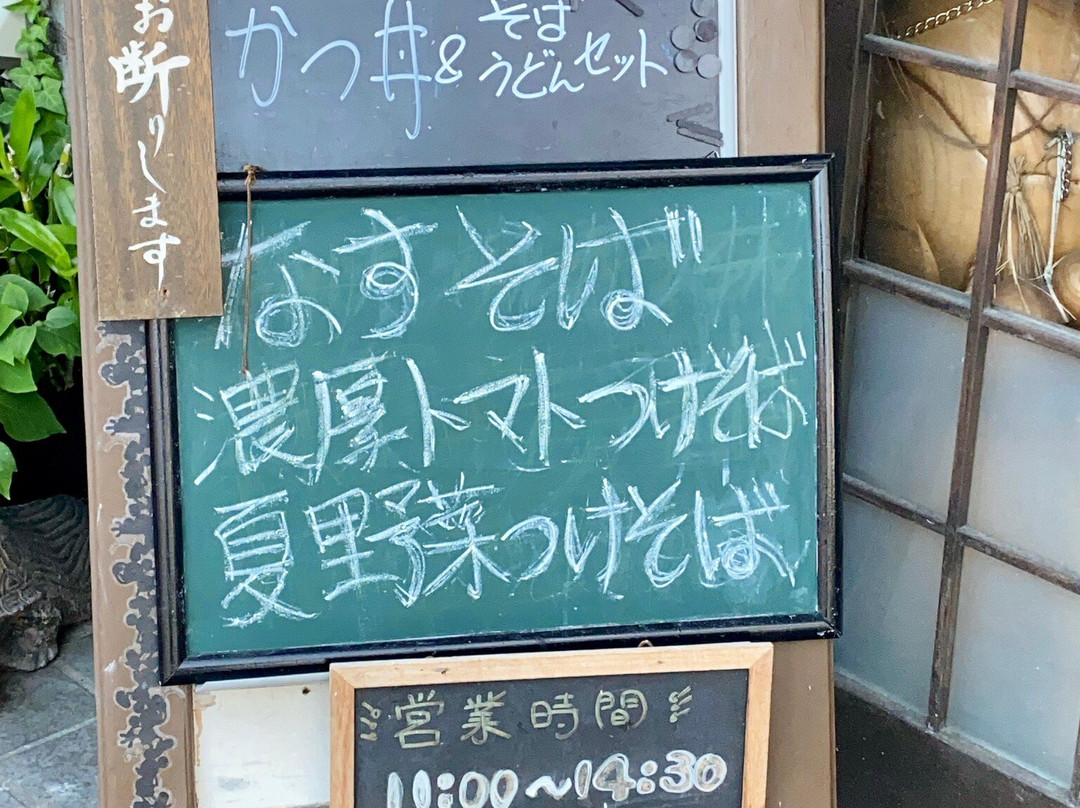 お断りします
かつ丼&そばうどんセット
なすそば
濃厚トマトつけそば
夏野菜つけそば
営業時間
11:00～14:30